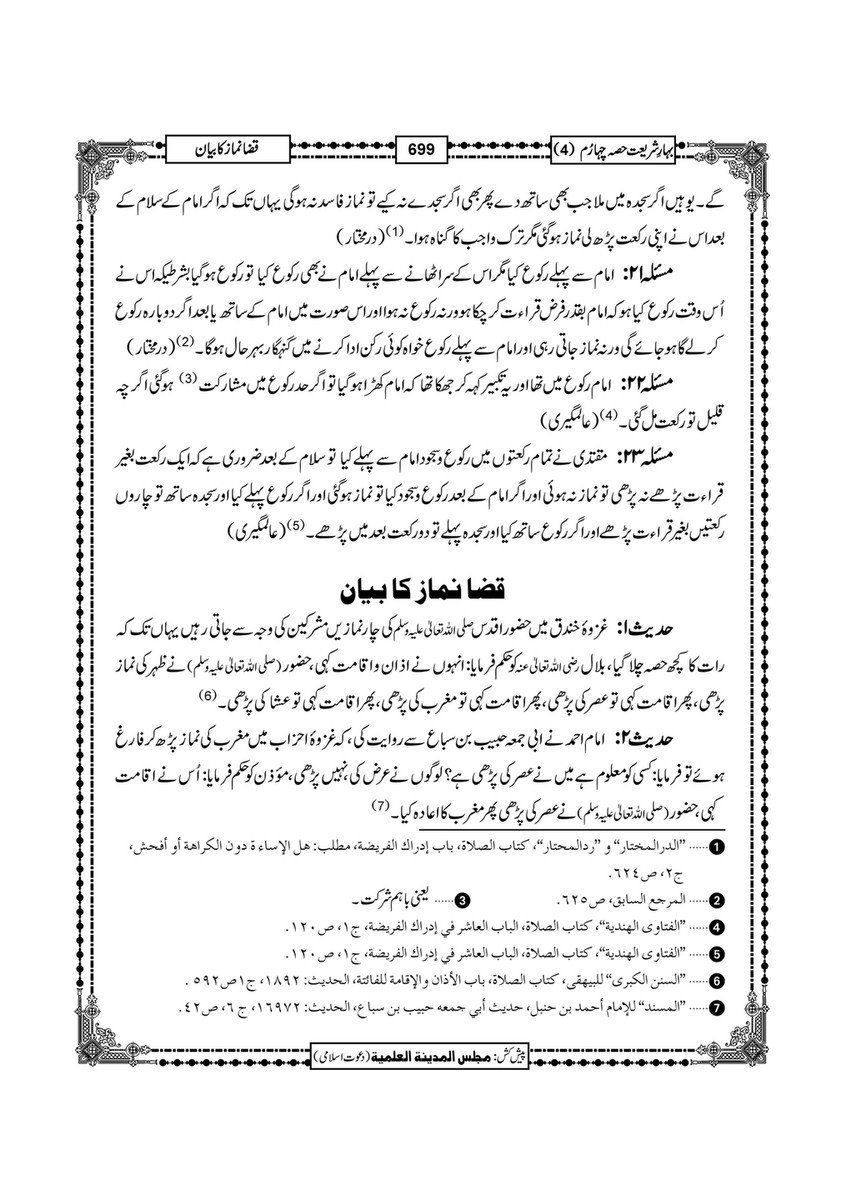 بہارِ شریعت حصہ چہارُم (4)
699
قضا نماز کا بیان
گے۔ یوہیں اگر سجدہ میں ملا جب بھی ساتھ دے پھر بھی اگر سجدے نہ کیے تو نماز فاسد نہ ہوگی یہاں تک کہ اگر امام کے سلام کے
بعد اس نے اپنی رکعت پڑھ لی نماز ہوگئی مگر ترک واجب کا گناہ ہوا۔ (1) (درمختار)
مسئلہ ۲۱: امام سے پہلے رکوع کیا مگر اس کے سر اٹھانے سے پہلے امام نے بھی رکوع کیا تو رکوع ہوگیا بشرطیکہ اس نے
اُس وقت رکوع کیا ہو کہ امام بقدرِ فرض قراءت کر چکا ہو ورنہ رکوع نہ ہوا اور اس صورت میں امام کے ساتھ یا بعد اگر دوبارہ رکوع
کرلے گا ہو جائے گی ورنہ نماز جاتی رہی اور امام سے پہلے رکوع خواہ کوئی رکن ادا کرنے میں گنہگار بہرحال ہوگا۔ (2) (درمختار)
مسئلہ ۲۲: امام رکوع میں تھا اور یہ تکبیر کہہ کر جھکا تھا کہ امام کھڑا ہوگیا تو اگر حد رکوع میں مشارکت (3) ہوگئی اگرچہ
قلیل تو رکعت مل گئی۔ (4) (عالمگیری)
مسئلہ ۲۳: مقتدی نے تمام رکعتوں میں رکوع و سجود امام سے پہلے کیا تو سلام کے بعد ضروری ہے کہ ایک رکعت بغیر
قراءت پڑھے نہ پڑھی تو نماز نہ ہوئی اور اگر امام کے بعد رکوع و سجود کیا تو نماز ہوگئی اور اگر رکوع پہلے کیا اور سجدہ ساتھ تو چاروں
رکعتیں بغیر قراءت پڑھے اور اگر رکوع ساتھ کیا اور سجدہ پہلے تو دو رکعت بعد میں پڑھے۔ (5) (عالمگیری)
قضا نماز کا بیان
حدیث ۱: غزوۂ خندق میں حضور اقدس صلی اللہ تعالیٰ علیہ وسلم کی چار نمازیں مشرکین کی وجہ سے جاتی رہیں یہاں تک کہ
رات کا کچھ حصہ چلا گیا، بلال رضی اللہ تعالیٰ عنہ کو حکم فرمایا: انہوں نے اذان و اقامت کہی، حضور (صلی اللہ تعالیٰ علیہ وسلم) نے ظہر کی نماز
پڑھی، پھر اقامت کہی تو عصر کی پڑھی، پھر اقامت کہی تو مغرب کی پڑھی، پھر اقامت کہی تو عشا کی پڑھی۔ (6)
حدیث ۲: امام احمد نے ابی جمعہ حبیب بن سباع سے روایت کی، کہ غزوۂ احزاب میں مغرب کی نماز پڑھ کر فارغ
ہوئے تو فرمایا: کسی کو معلوم ہے میں نے عصر کی پڑھی ہے؟ لوگوں نے عرض کی، نہیں پڑھی، مؤذن کو حکم فرمایا: اُس نے اقامت
کہی، حضور (صلی اللہ تعالیٰ علیہ وسلم) نے عصر کی پڑھی پھر مغرب کا اعادہ کیا۔ (7)
1 ...... ”الدرالمختار“ و ”ردالمحتار“، کتاب الصلاة، باب إدراك الفریضة، مطلب: هل الإساءة دون الکراهة أو أفحش،
ج۲، ص٦٢٤.
2 ...... المرجع السابق، ص٦٢٥. 3 ...... یعنی باہم شرکت۔
4 ...... ”الفتاوی الهندیة“، کتاب الصلاة، الباب العاشر في إدراك الفریضة، ج۱، ص۱۲۰.
5 ...... ”الفتاوی الهندیة“، کتاب الصلاة، الباب العاشر في إدراك الفریضة، ج۱، ص۱۲۰.
6 ...... ”السنن الکبری“ للبیهقی، کتاب الصلاة، باب الأذان والإقامة للفائتة، الحدیث: ١٨٩٢، ج١ص٥٩٢.
7 ...... ”المسند“ للإمام أحمد بن حنبل، حدیث أبي جمعه حبیب بن سباع، الحدیث: ١٦٩٧٢، ج٦، ص٤٢.
پیش کش: مجلس المدینة العلمیة (دعوت اسلامی)